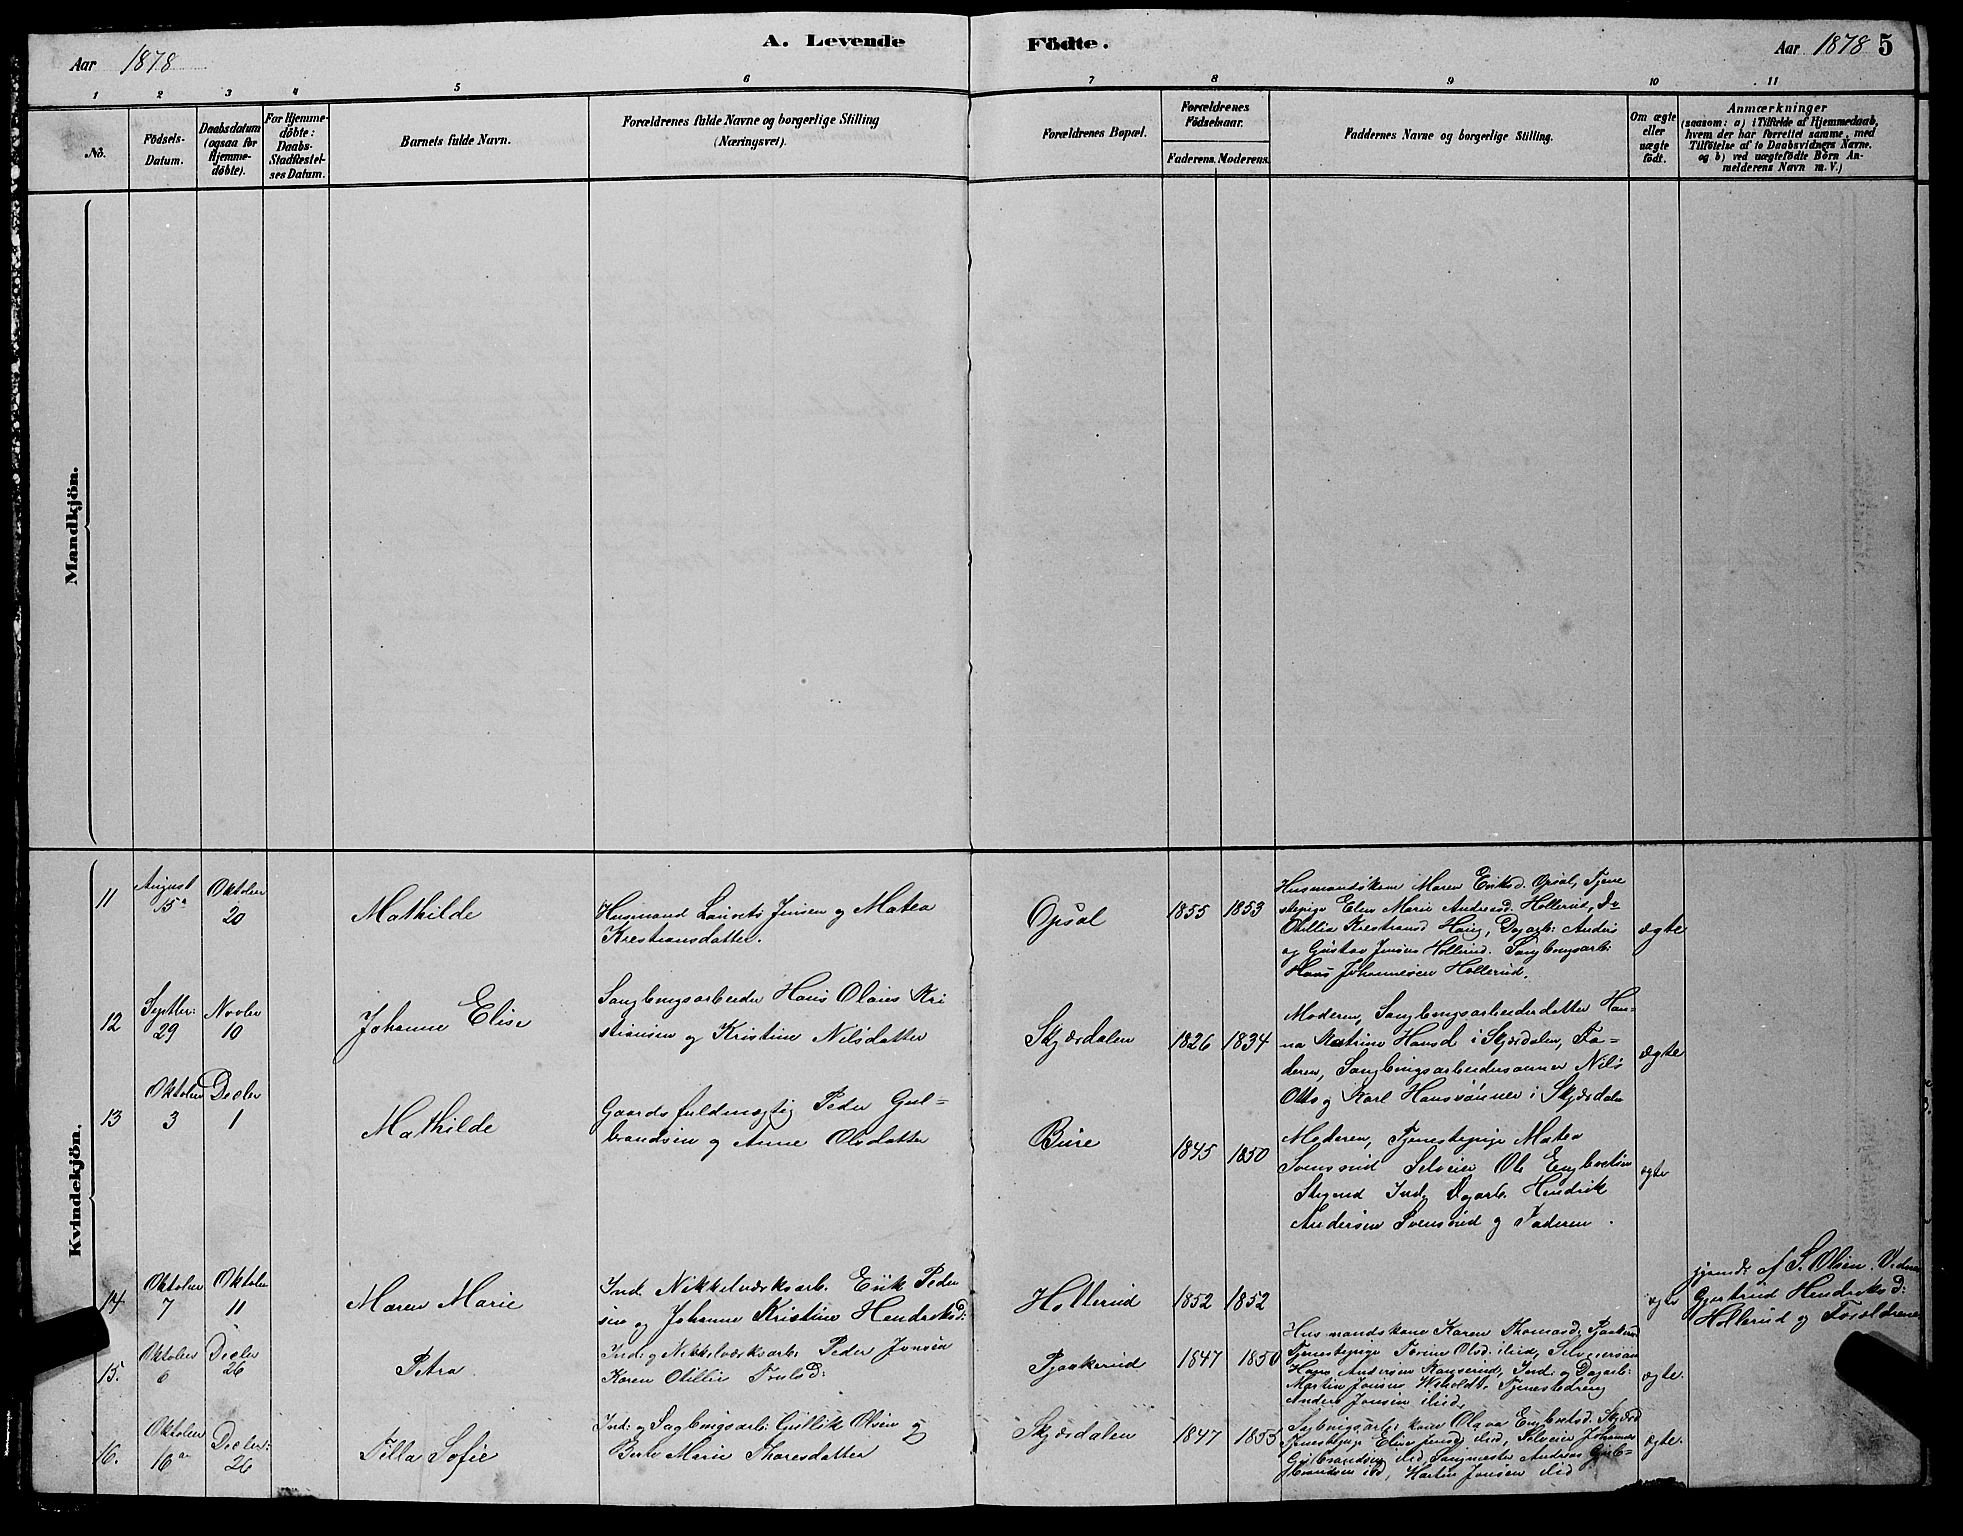 A. Levende Födte.
Aar 1878
Aar 1878 5
1 2 3 4 5 6 7 8 9 10 11
No.
Födsels-
Datum.
Daabsdatum
(ogsaa for
Hjemme-
döbte).
For Hjemme-
döbte:
Daabs-
Stadfæstel-
ses Datum.
Barnets fulde Navn.
Forældrenes fulde Navne og borgerlige Stilling
(Næringsvei).
Forældrenes Bopæl.
Forældrenes
Födselsaar.
Faderens. Moderens.
Faddernes Navne og borgerlige Stilling.
Om ægte
eller
uægte
födt.
Anmærkninger
(saasom: a) i Tilfælde af Hjemmedaab,
hvem der har forrettet samme, med
Tilföielse af to Daabsvidners Navne,
og b) ved uægtefödte Börn An-
melderens Navn m. V.)
Mandkjön.
Kvindekjön.
11
August
15
Oktober
20
Mathilde
Husmand Laurets Jensen og Matea
Krestiansdatter.
Opsal
1855 1853
Husmandskone Maren Eriksd. Opsal, Tjene
stepige Elen Marie Andreasd. Hollerud, do
Otillia Krestiansd Haug, Dagarb. Anders
og Gustav Jensen Hollerud. Saugbrugsarb:
Hans Johannesen Hollerud.
ægte
12
Septber:
29
Novber
10
Johanne Elise
Saugbrugsarbeider Hans Olaies Kri
stiansen og Kristine Nilsdatter
Skjærdalen
1826 1834
Moderen, Saugbrugsarbeiderdatter Han-
na Katrine Hansd i Skjærdalen, Fa-
deren, Saugbrugsarbeidersønner Nils
Otto og Karl Hanssønner i Skjærdalen
ægte
13
Oktober
3
Decber
1
Mathilde
Gaardsfuldmægtig Peder Gul-
brandsen og Anne Olsdatter
Bure
1845 1850
Moderen, Tjenestepige Matea
Svensrud Selveier Ole Engbretsen
Ind. Dagarb. Hendrik
Andersen Svensrud og Faderen.
ægte
14
Oktober
7
Oktober
11
Maren Marie
Ind. Nikkelværksarb. Erik Peder
sen og Johanne Kristine Hendriksd:
Hollerud
1852 1852
ægte
hjemdt af S. Olsen. Vidner
Gjertrud Hendriksd:
Hollerud og Forældrene
15.
Oktober
6
Decber
26
Petra
Ind: og Nikkelværksarb. Peder Jonsen
Karen Otillie Trulsd:
Pjaakerud
1847 1850
Husmandskone Karen Thomasd: Pjaakerud
Tjenestepige Torine Olsd: ibid,
Hans Andersen Ind. og Dagarb:
Martin Jonsen Tjenestedreng
Anders Jonsen ibid,
ægte.
16.
Oktober
16
Decber:
26
Tilla Sofie
Ind: og Sagbrugsarb: Gullik Olsen og
Berte Marie Thoresdatter
Skjærdalen
1847 1855
Sagbrugsarb: kone Olava Engbretsd. Skjærd
Tjenestepige Elise Jensd: ibid, Selveier Johannes
Gulbrandsen ibid, Saugmester Andreas Gulb-
brandsen ibd, Martin Jonsen ibid
ægte.